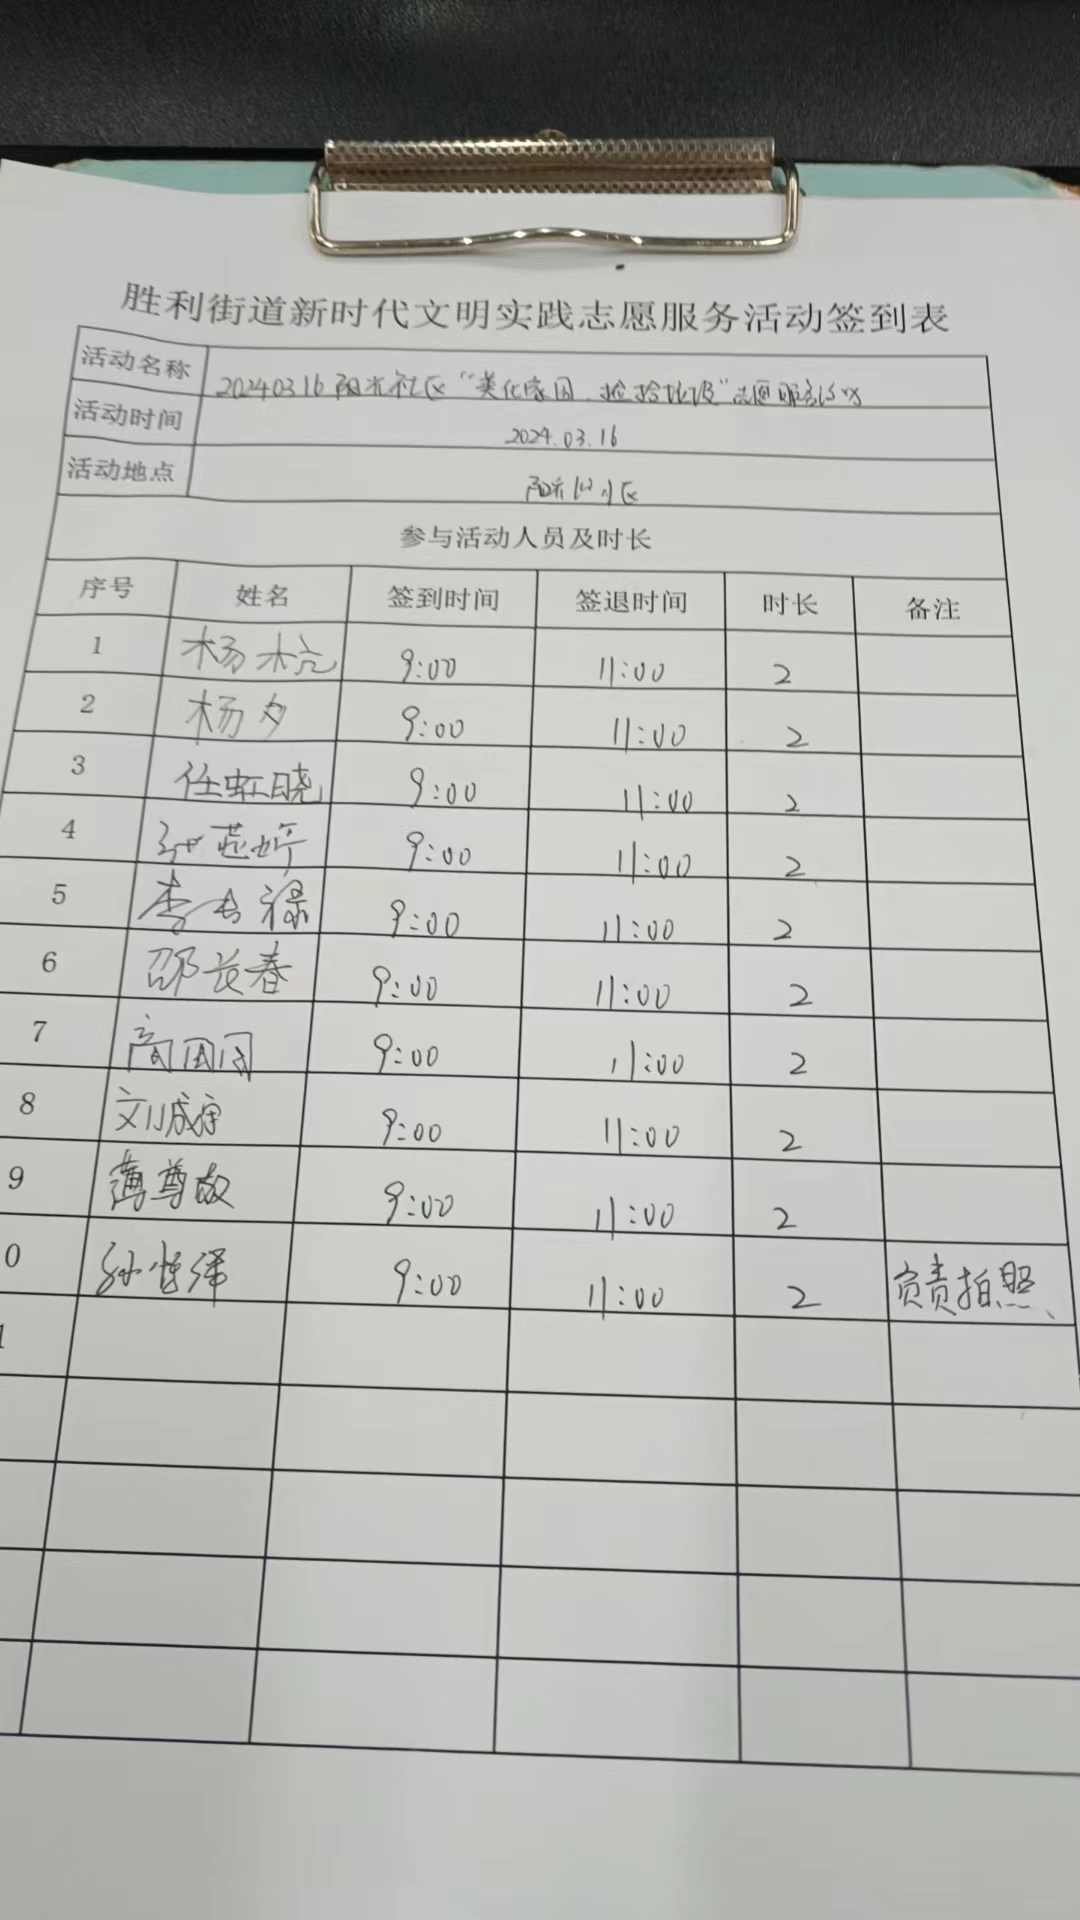 胜利街道新时代文明实践志愿服务活动签到表
活动名称 20240316阳光社区“美化家园、捡拾垃圾”志愿服务活动
活动时间 2024.03.16
活动地点 阳光 小区
参与活动人员及时长
序号 姓名 签到时间 签退时间 时长 备注
1 杨杭 9:00 11:00 2
2 杨夕 9:00 11:00 2
3 任虹晓 9:00 11:00 2
4 9:00 11:00 2
5 李长禄 9:00 11:00 2
6 邵长春 9:00 11:00 2
7 商团团 9:00 11:00 2
8 刘成宇 9:00 11:00 2
9 薄尊敬 9:00 11:00 2
0 孙 泽 9:00 11:00 2 负责拍照、
1